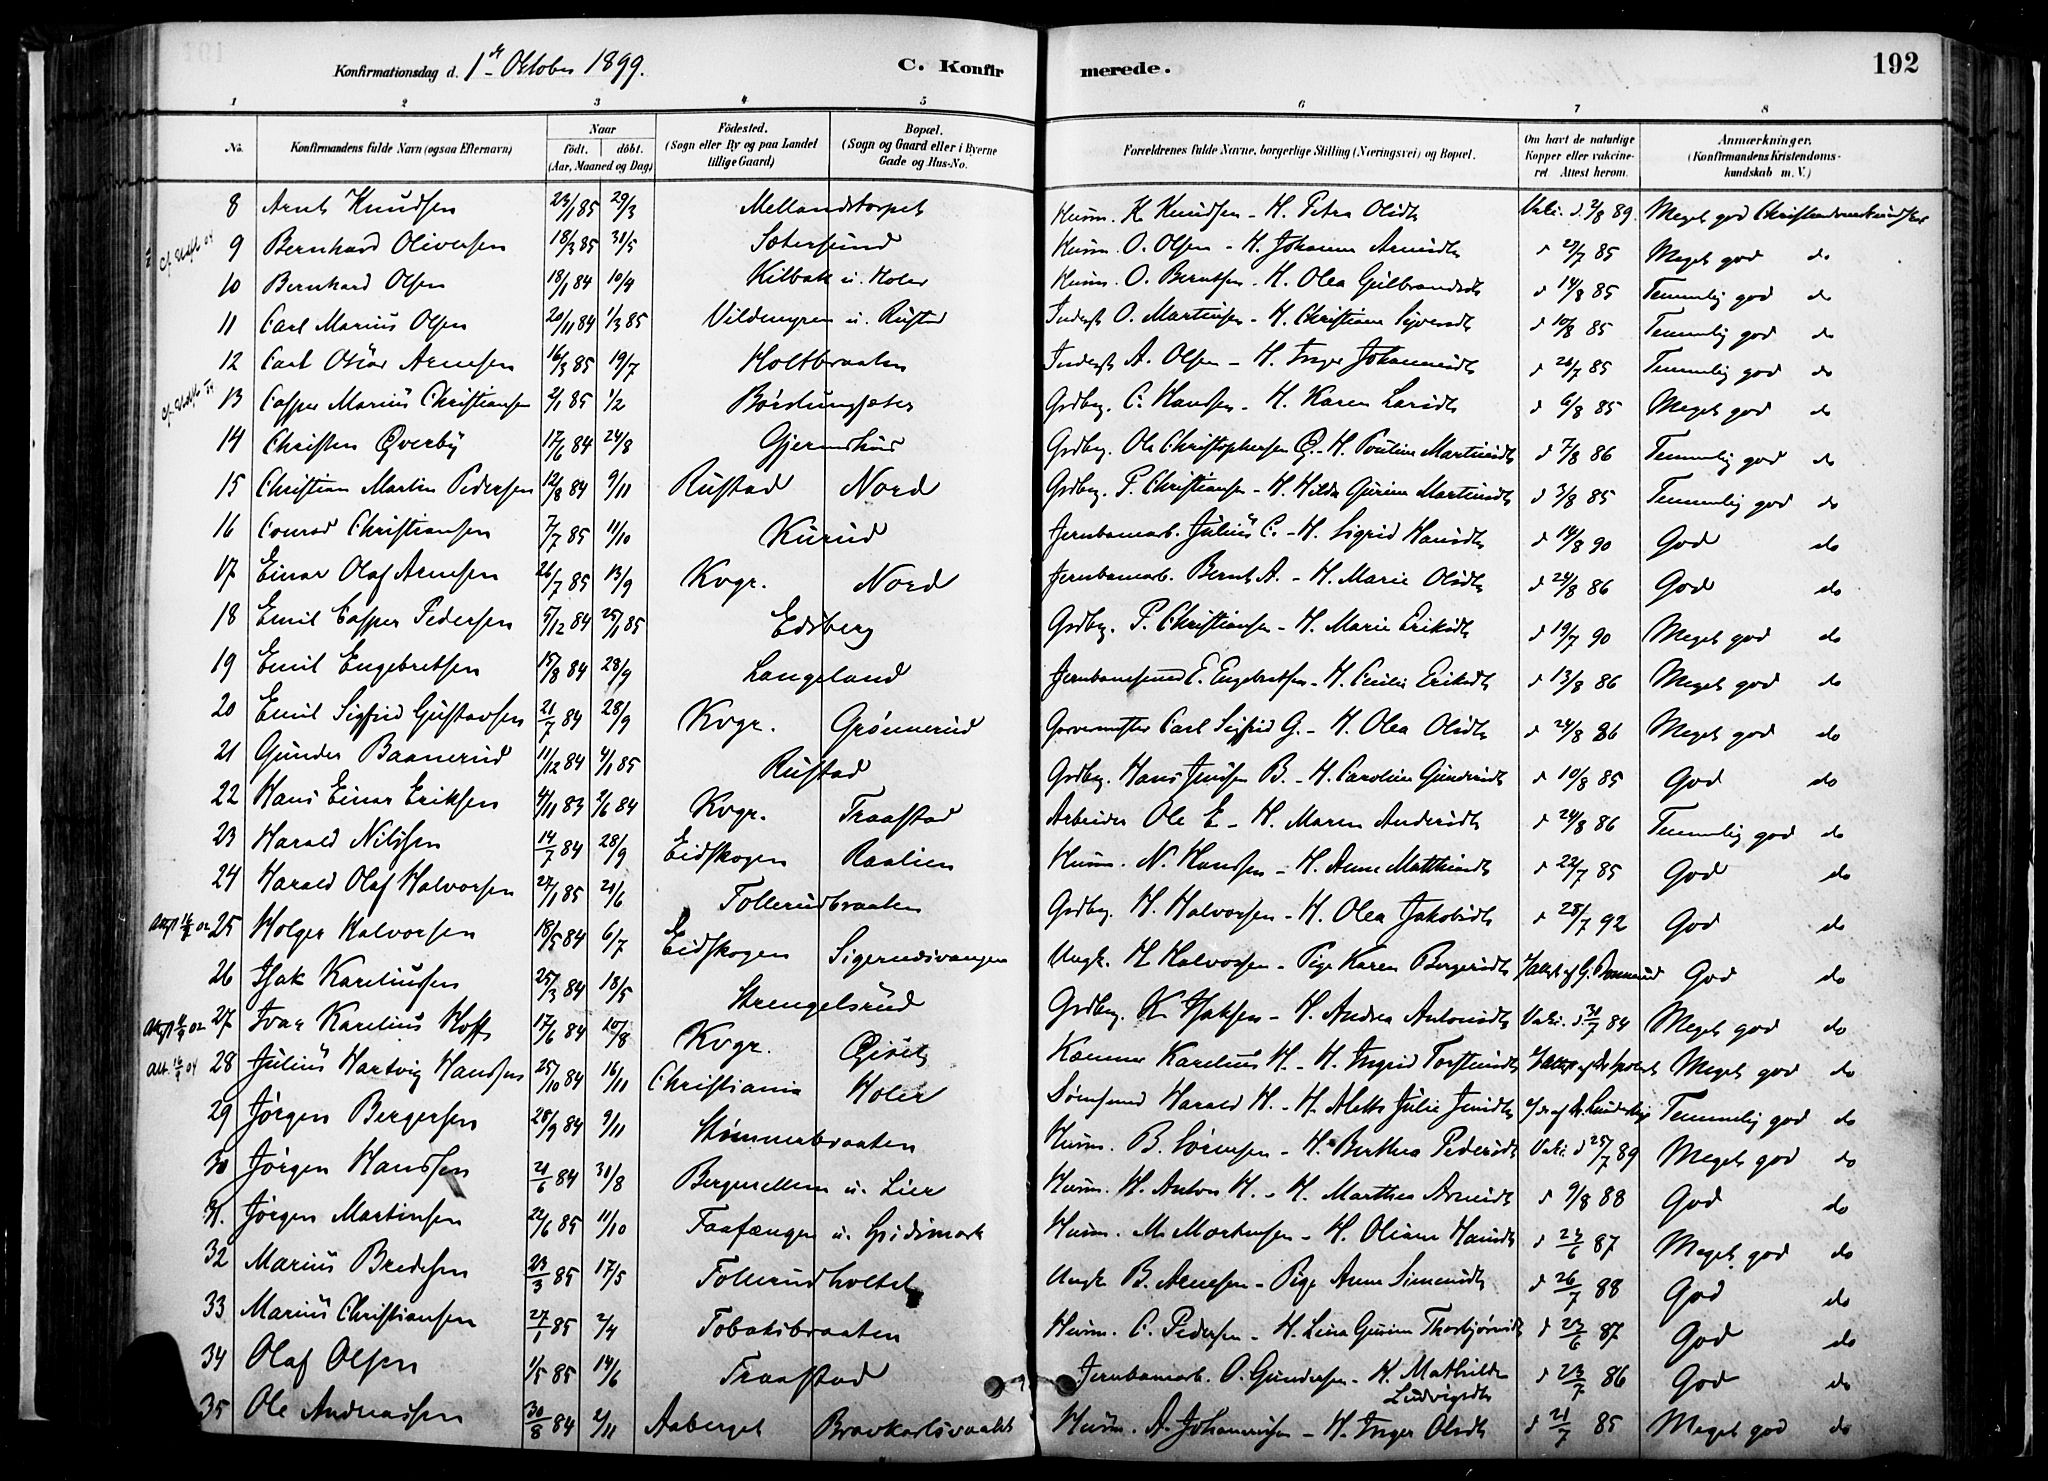 Konfirmationsdag d. 1ste Oktober 1899. C. Konfirmerede. 192
1 2 3 4 5 6 7 8
No. Konfirmandens fulde Navn (ogsaa Efternavn) Naar født. døbt. (Aar, Maaned og Dag) Fødested. (Sogn eller By og paa Landet tillige Gaard) Bopæl. (Sogn og Gaard eller i Byerne Gade og Hus-No. Forældrenes fulde Navne, borgerlige Stilling (Næringsvei) og Bopæl. Om havt de naturlige Kopper eller vakcineret. Attest herom. Anmærkninger. (Konfirmandens Kristendomskundskab m. V.)
8 Arnt Knudsen 23/1 85 29/3 Mellandstorpet Husm. K. Knudsen - H. Petra Olsdt. Vaki. d. 2/8 89. Meget god Christendomskundskab
9 Bernhard Oliversen 18/3 85 31/5 Sætersund Husm. O. Olsen - H. Johanne Arnesdt. d 29/7 85 Meget god do
10 Bernhard Olsen 18/1 84 10/4 Kilbak u. Holer Husm. O. Berntsen - H. Olea Gulbrandsdt. d 14/8 85 Temmelig god do
11 Carl Marius Olsen 20/11 84 1/3 85 Vildmyren u. Rustad Inderst O. Martinsen - H. Christiane Syversdt. d 10/8 85 Temmelig god do
12 Carl Oskar Arnesen 16/3 85 19/7 Holtbraaten Inderst A. Olsen - H. Inger Johannesdt. d 26/7 85 Temmelig god do
13 Casper Marius Christiansen 2/1 85 1/2 Børdungsæter Grdbrg. C. Hansen - H. Karen Larsdt. d 6/8 85 Meget god do
14 Christen Øverby 17/6 84 24/8 Gjermshus Grdbrg. Ole Christophersen Ø. - H. Pouline Martinsdt. d 7/8 86 Temmelig god do
15 Christian Martin Pedersen 12/8 84 9/11 Rustad Nord Grdbrg. P. Christiansen - H. Hilda Gurine Martinsdt. d 3/8 85 Temmelig god do
16 Conrad Christiansen 7/7 85 11/10 Kurud Jernbanearb. Julius C. - H. Sigrid Hansdt. d 14/8 90 God do
17 Einar Olaf Arnesen 26/7 85 13/9 Kvgr. Nord Jernbanearb. Bernt A. - H. Marie Olsdt. d 24/8 86 God do
18 Emil Casper Pedersen 5/12 84 25/1 85 Edsberg Grdbrg. P. Christiansen - H. Marie Eriksdt. d 19/7 90 Meget god do
19 Emil Engebretsen 15/8 84 28/9 Langeland Jernbanesmed E. Engebretsen - H. Cecilie Eriksdt. d 13/8 86 Meget god do
20 Emil Sigfrid Gustavsen 21/7 84 28/9 Kvgr. Grønnerud Garvermester Carl Sigfrid G. - H. Olea Olsdt. d 24/8 86 Meget god do
21 Gunder Baanerud 11/12 84 4/1 85 Rustad Grdbrg. Hans Jensen B. - H. Caroline Gundersdt. d 10/8 85 God do
22 Hans Einar Eriksen 4/11 83 2/6 84 Kvgr. Traastad Arbeider Ole E - H. Maren Andersdt. d 24/8 86 Temmelig god do
23 Harald Nilssen 14/7 84 28/9 Eidskogen Raalien Husm. N. Hansen - H. Anne Matthisdt. d 22/7 85 God do
24 Harald Olaf Halvorsen 27/1 85 21/6 Tollerudbraaten Grdbrg. H. Halvorsen - H. Olea Jakobsdt. d 28/7 92 God do
25 Holger Halvorsen 18/5 84 6/7 Eidskogen Sigerudsvangen Ungk. H. Halvorsen - Pige Karen Bergersdt. God do
26 Isak Kareliussen 25/3 84 18/5 Strengelsrud Grdbrg. K. Isaksen - H. Andrea Antonsdt. Vaki. d. 31/7 84 Meget god do
27 Ivar Karelius Hoff 17/6 84 10/8 Kvgr. Kæmner Karelius H. - H. Ingrid Torstensdt. Meget god do
28 Julius Hartvig Hansen 25/10 84 16/11 Christiania Holer Harald H. - H. Mette Julie Jensdt. Temmelig god do
29 Jørgen Bergersen 28/9 84 9/11 Stømnerbraaten Husm. B. Sørensen - H. Berthea Pedersdt. Vaki. d 25/7 89 Meget god do
30 Jørgen Hanssen 21/6 84 31/8 Bergerellern u. Lier Husm. H. Anton H. - H. Marthea Arnesdt. d 9/8 88 God do
31. Jørgen Martinsen 22/6 85 11/10 Taafængen u. Husm. M. Mortensen - H. Oliane Hansdt. d 23/6 87 Meget god do
32 Marius Bredesen 23/3 85 17/5 Tollerudholtet Ungk. B. Arnesen - Pige Anne Simensdt. d 26/7 88 God do
33 Marius Christiansen 27/1 85 2/4 Tobaksbraaten Husm. C. Pedersen - H. Lina Gurine Thorbjørnsdt. d 23/6 87 God do
34 Olaf Olsen 1/5 85 14/6 Traastad Jernbanearb. O. Gundersen - H. Mathilde Ludvigsdt. d 23/7 86 God do
35 Ole Andreassen 30/8 84 2/11 Aaberget Husm. A. Johannessen - H. Inger Olsdt. d 21/7 85 Meget god do